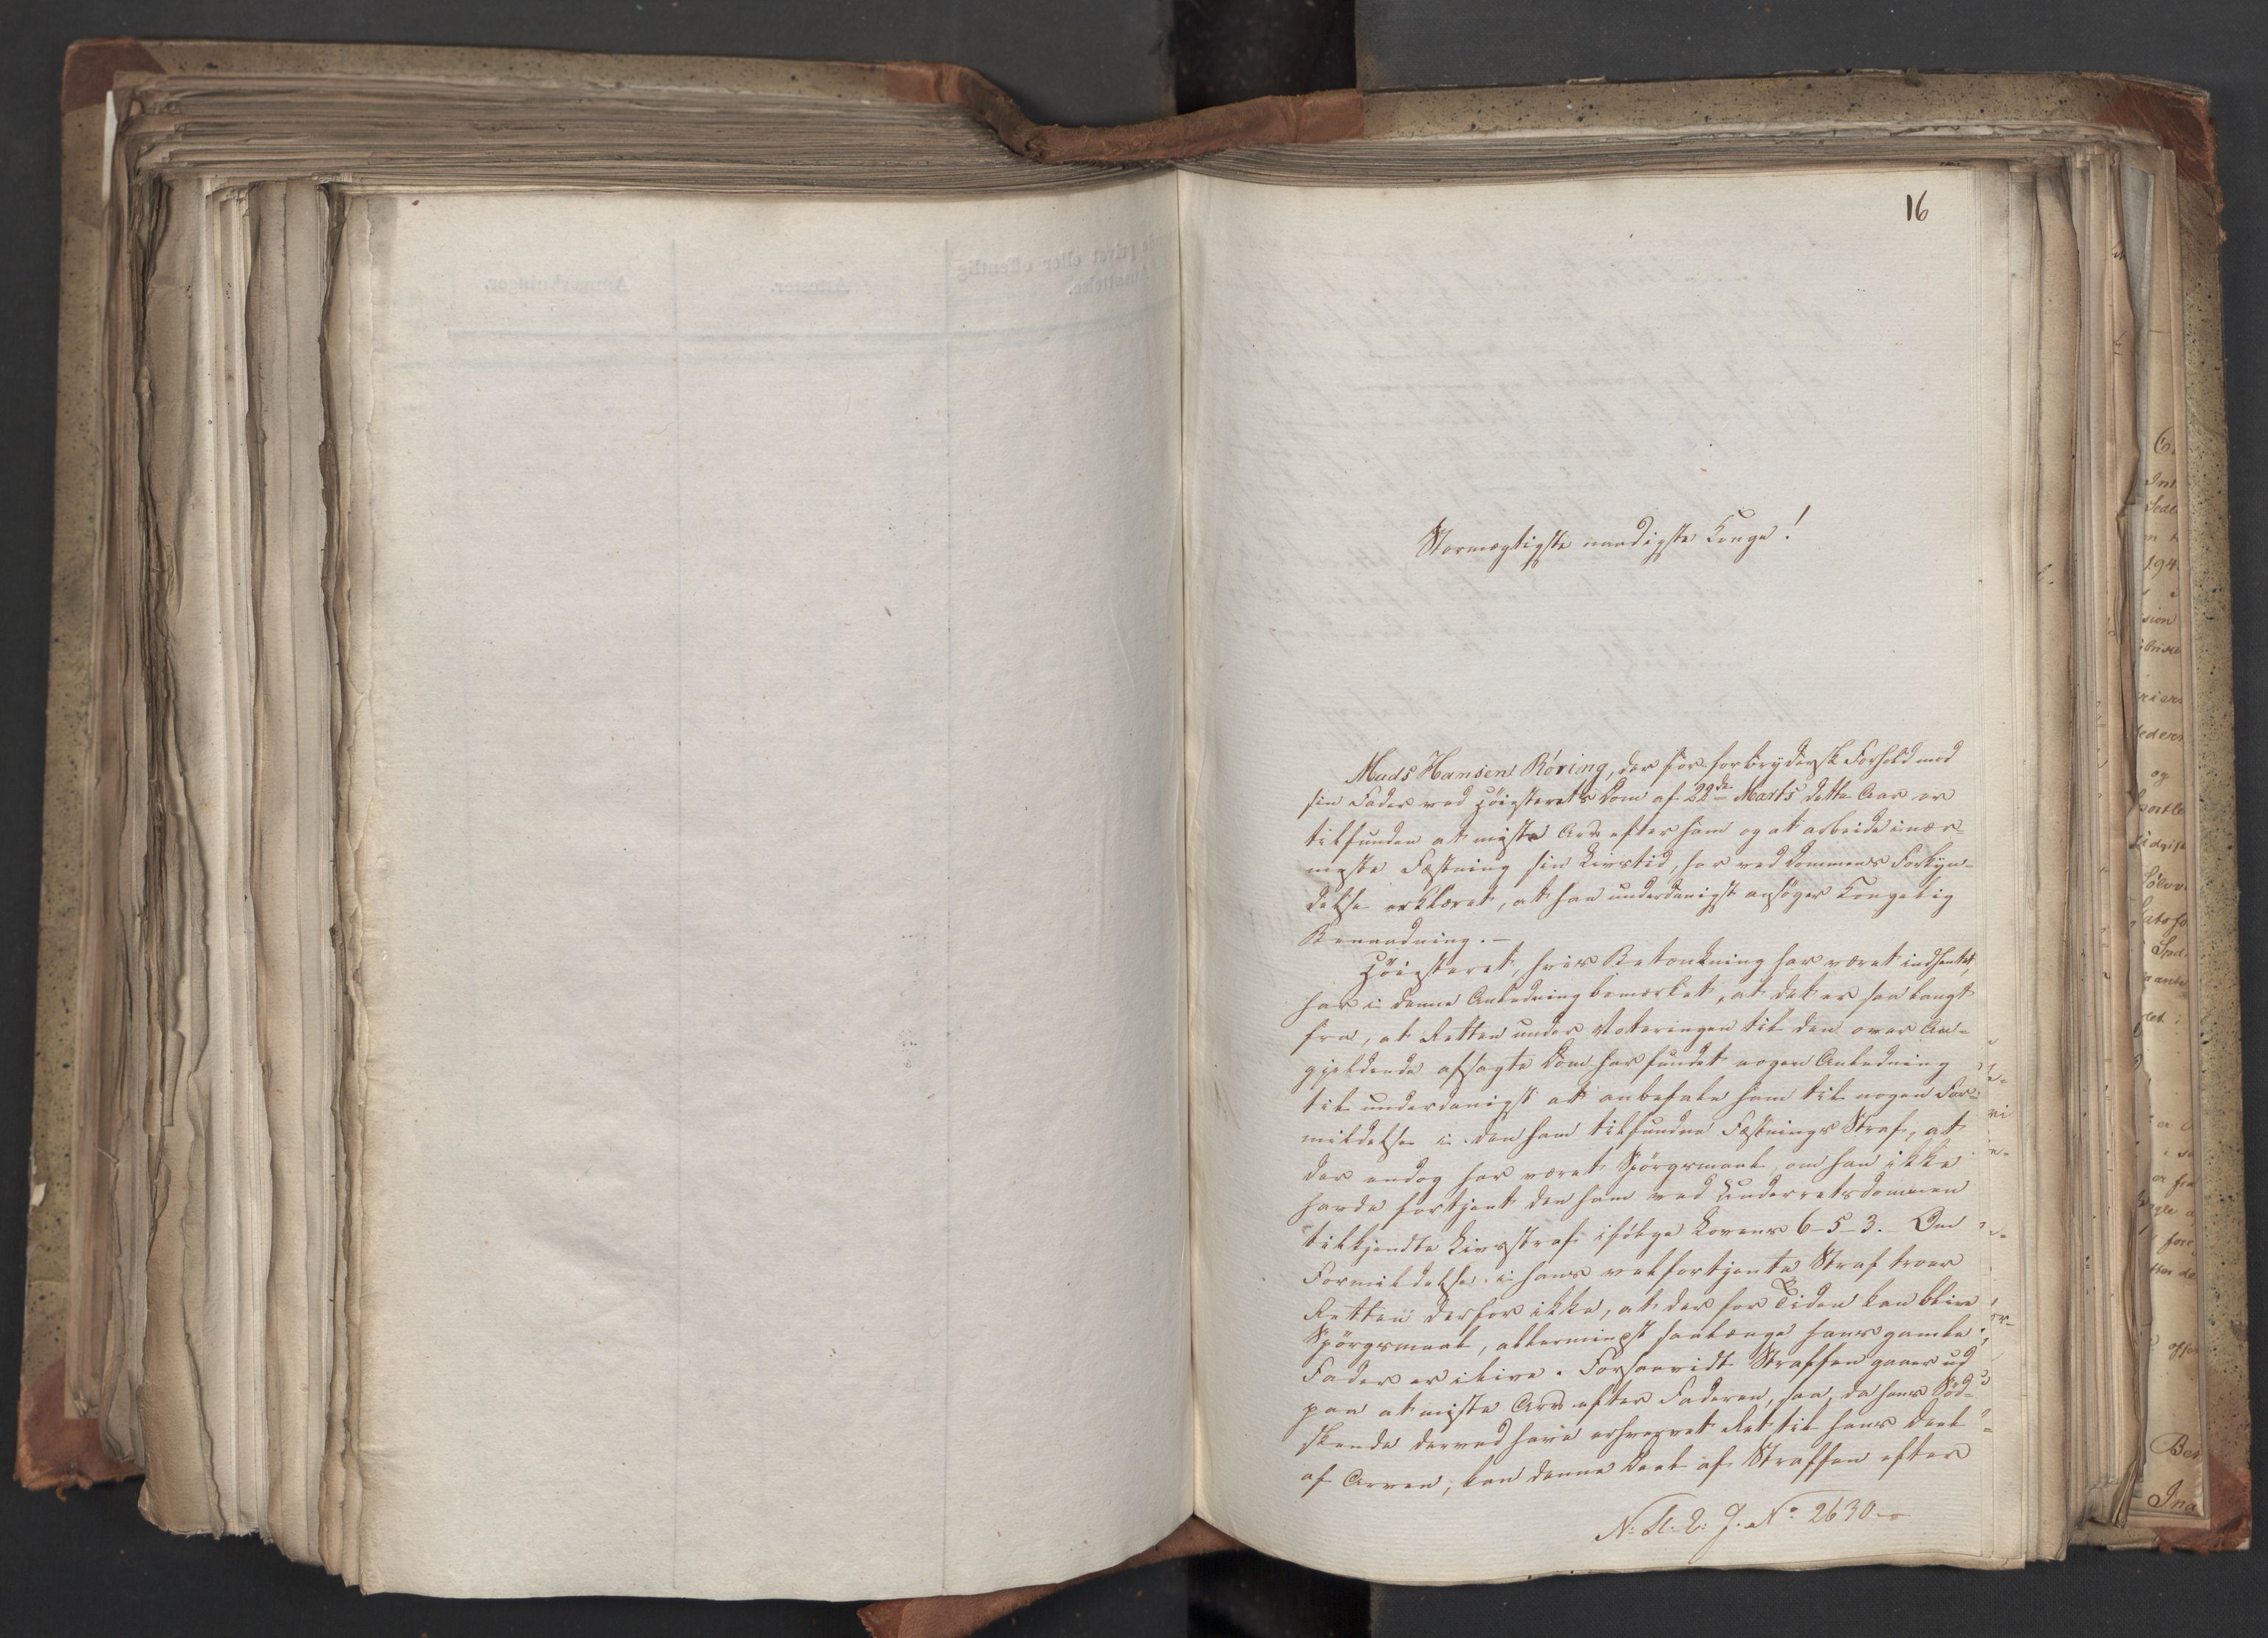 16
Stormægtigste naadigste Konge!
Mads Hansen Röring, der for forbrydersk Forhold mod
sin Fader ved Höiesterets Dom af 22de Marts dette Aar er
tilfunden at miste Arv efter ham og at arbeide i nær-
meste Fæstning sin Livstid, har ved Dommens Forkyn-
delse erklæret, at han underdanigst ansöger Kongelig
Benaadning. -
Höiesteret, hvis Betænkning har været indhentet,
har i denne Anledning bemærket, at det er saa langt
fra, at Retten under Voteringen til den over An-
gjeldende afsagte Dom har fundet nogen Anledning
til underdanigst at anbefale ham til nogen For-
mildelse i den ham tilfundne Fæstnings Straf, at
der endog har været Spörgsmaal, om han ikke
havde fortjent den ham ved Underretsdommen
tilkjendte Livsstraf ifölge Lovens 6-5-3. Om
Formildelse i hans velfortjente Straf troer
Retten derfor ikke, at der for Tiden kan blive
Spörgsmaal, allermindst saalænge hans gamle
Fader er ilive. Forsaavidt Straffen gaaer ud
paa at miste Arv efter Faderen, saa, da hans Söd-
skende derved have erhvervet Ret til hans Deel
af Arven, kan denne Deel af Straffen efter
No 2630